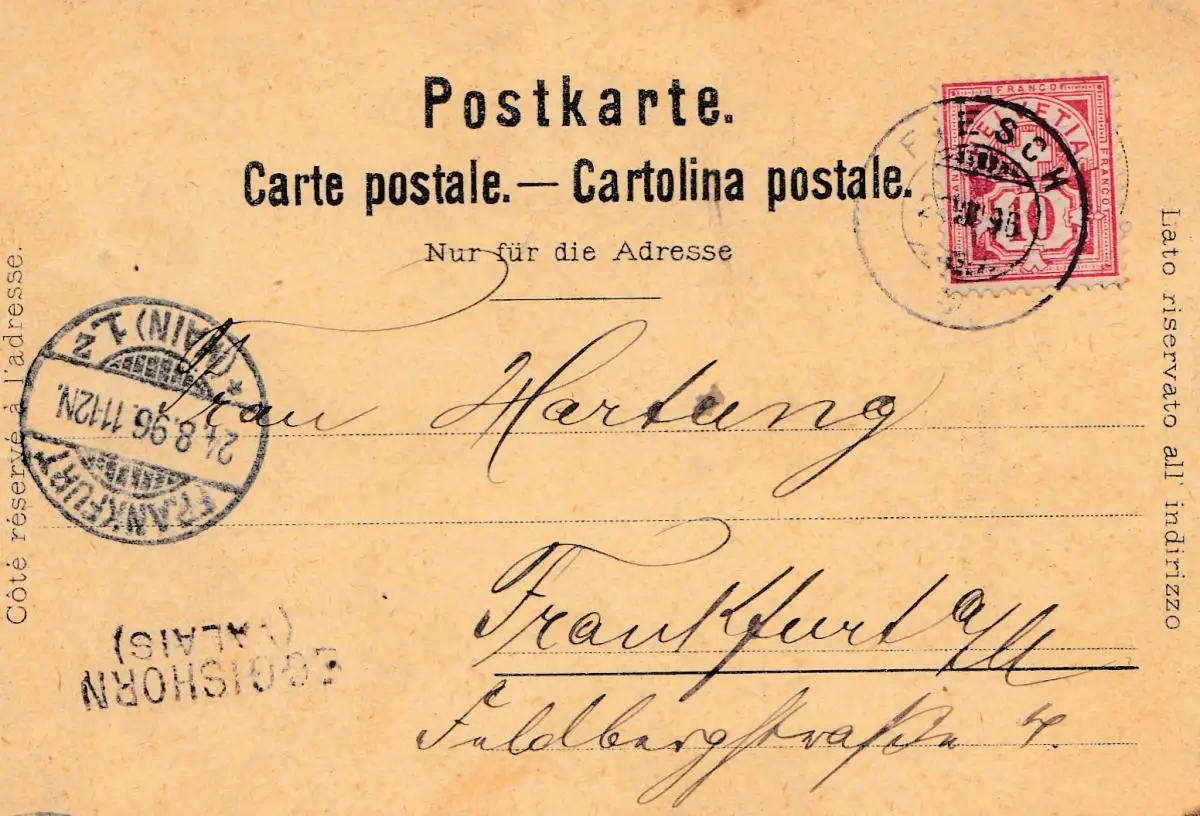 Postkarte.
Carte postale. — Cartolina postale.
Nur für die Adresse
Côté réservé à l'adresse.
Lato riservato all' indirizzo
FRANCO
HELVETIA
FRANCO
10
FIESCH
VIII 96
FRANKFURT
24.8.96. 11-12N.
* (MAIN) 1. Z
Frau Hartung
Frankfurt a/M
Feldbergstraße 4.
EGGISHORN
(VALAIS)